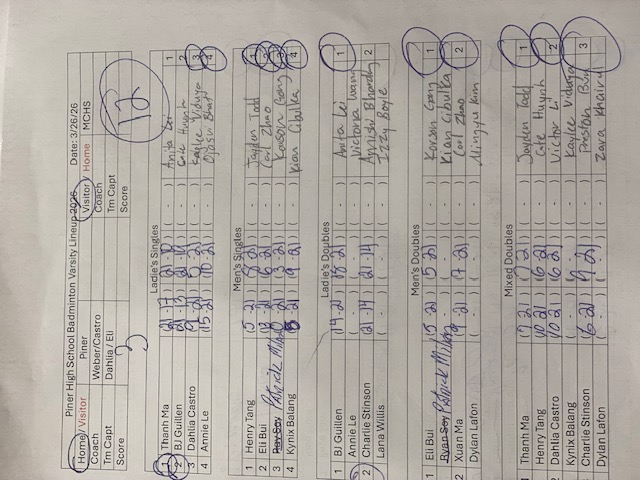 Piner High School Badminton Varsity Lineup 2026 Date: 3/26/26
Home/ Visitor Piner Visitor/ Home MCHS
Coach Weber/Castro Coach
Tm Capt Dahlia / Eli Tm Capt
Score 3 Score 12
Ladie's Singles
1 Thanh Ma (21-17) (21-12) ( - ) Anita Lei 1
2 BJ Guillen (21-13) Cate Huynh 2
3 Dahlia Castro Kaylee Vidura 3
4 Annie Le (15-21) (10-21) ( - ) 4
Men's Singles
1 Henry Tang (5-21) (8-21) ( - ) Jayden Todd 1
2 Eli Bui Carl Zhao 2
3 Patrick Karson Gong 3
4 Kynix Balang (9-21) ( - ) Kian Cibulka 4
Ladie's Doubles
1 BJ Guillen (14-21) (18-21) ( - ) Anita Lei 1
Annie Le Victoria Wang
2 Charlie Stinson (21-14) (21-14) ( - ) 2
Lana Willis Izzy Boyle
Men's Doubles
1 Eli Bui (5-21) (5-21) ( - ) Karson Gong 1
Patrick Kian Cibulka
2 Xuan Ma (9-21) (7-21) ( - ) Carl Zhao 2
Dylan Lafon ( - ) ( - ) ( - ) Mingyu Kim
Mixed Doubles
1 Thanh Ma (7-21) (7-21) ( - ) Jayden Todd 1
Henry Tang (10-21) (6-21) ( - ) Cate Huynh
2 Dahlia Castro (10-21) (6-21) ( - ) Victor Li 2
Kynix Balang ( - ) ( - ) ( - ) Kaylee Vidura
3 Charlie Stinson (6-21) (9-21) ( - ) Preston 3
Dylan Lafon ( - ) ( - ) ( - ) Zara Khairul